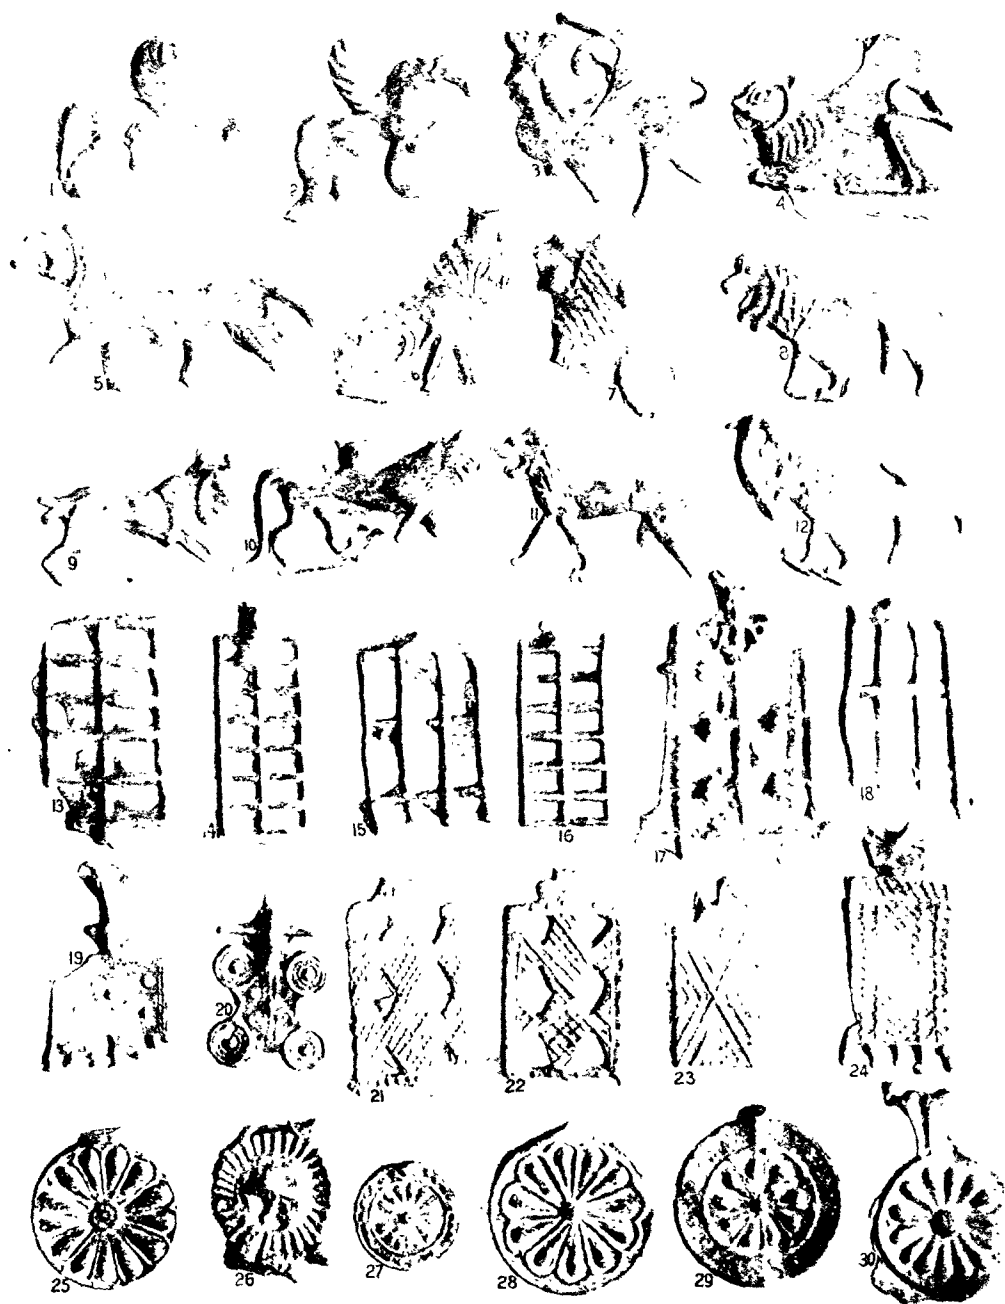 1 2 3 4
5 6 7 8
9 10 11 12
13 14 15 16 17 18
19 20 21 22 23 24
25 26 27 28 29 30